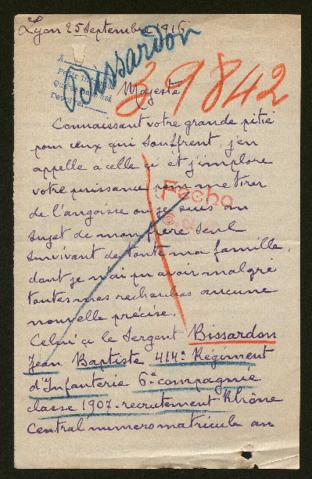 Lyon 25 Septembre 1916
Bussardon
39842
Majesté
Connaissant votre grande pitié
pour ceux qui souffrent, j'en
appelle a celle ci et j'implore
votre puissance pour me tirer
de l'angoisse ou je suis au
sujet de mon frère seul
survivant de toute ma famille,
dont je n'ai pu avoir malgré
toutes mes recherches aucune
nouvelle précise.
Fecha
Celui ci le Sergent Bissardon
Jean Baptiste 414e Régiment
d'Infanterie 6e compagnie
classe 1907. recrutement Rhône
Central numero matricule au